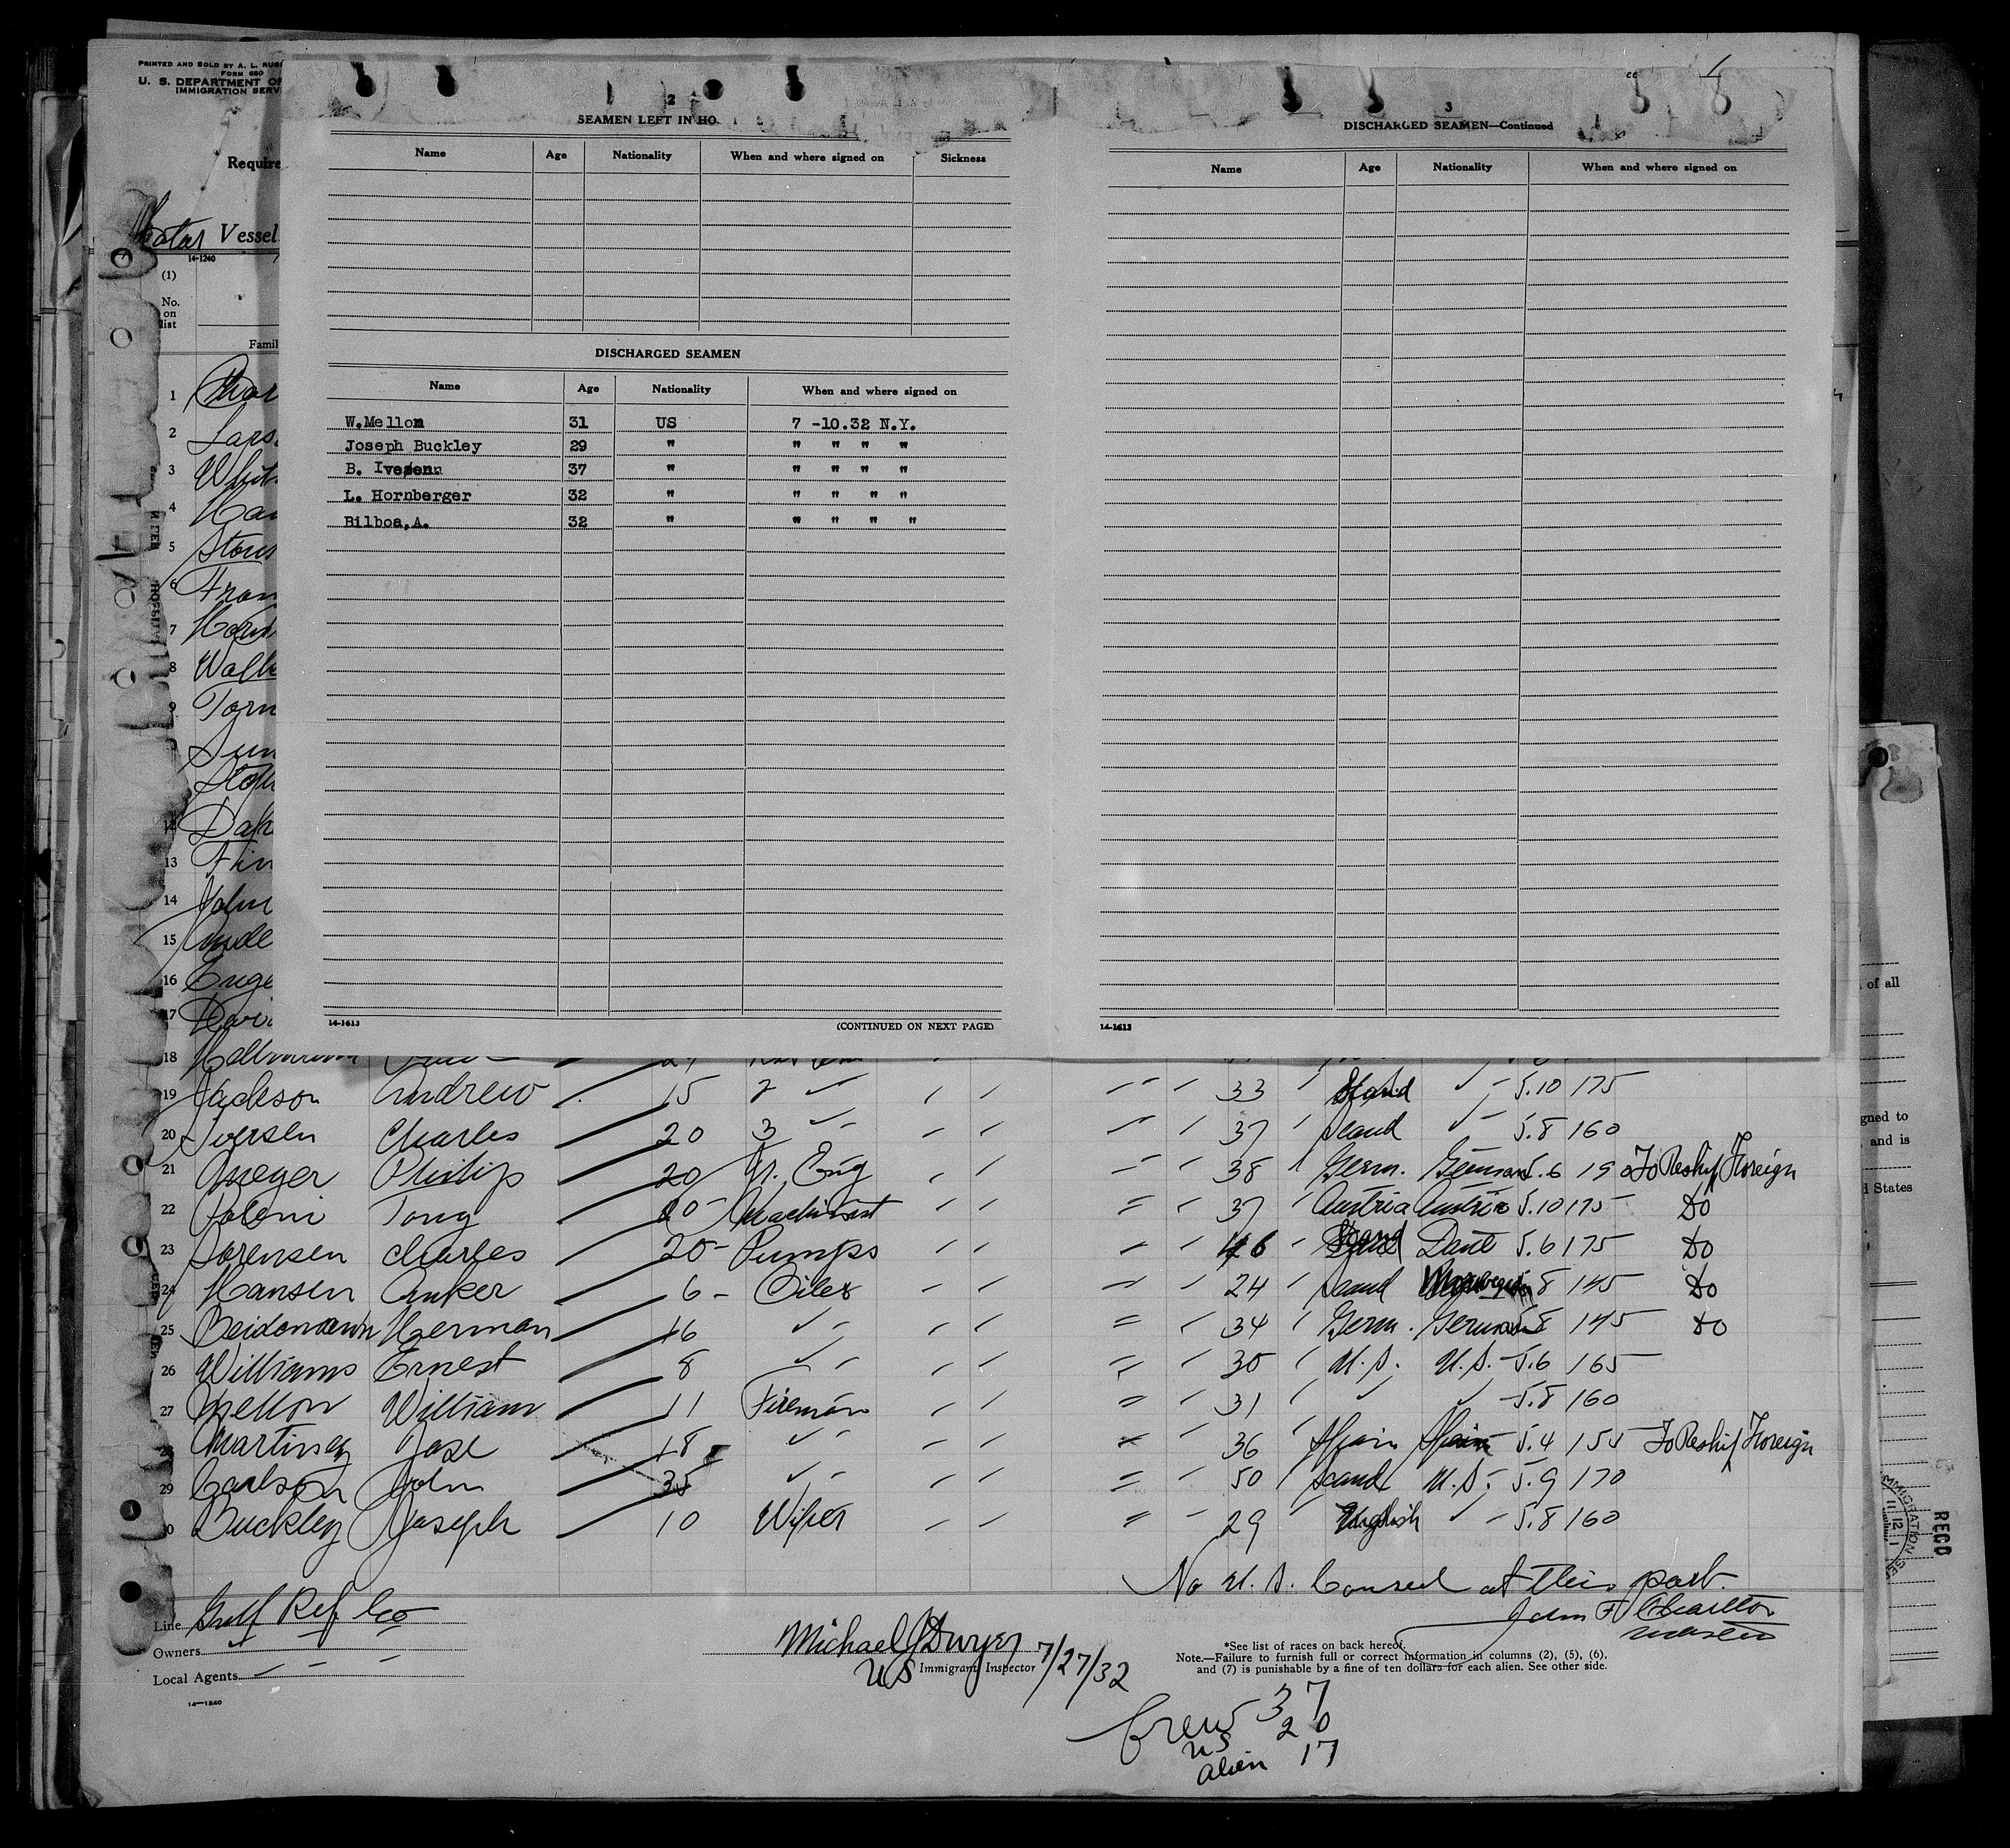 PRINTED AND SOLD BY A. L.
FORM 680
U. S. DEPARTMENT OF
IMMIGRATION SERV
Require
Vessel
14-1240
(1)
No.
on
list
Famil
2
SEAMEN LEFT IN HO
Name Age Nationality When and where signed on Sickness
DISCHARGED SEAMEN
Name Age Nationality When and where signed on
W.Mellon 31 US 7 -10.32 N.Y.
Joseph Buckley 29 " " " " "
B. Ivesenn 37 " " " " "
L. Hornberger 32 " " " " "
Bilboa,A. 32 " " " " "
14-1613 (CONTINUED ON NEXT PAGE)
3
DISCHARGED SEAMEN—Continued
Name Age Nationality When and where signed on
14-1613
1
2 Lars
3 Whit
4 Han
5 Stou
6 Fran
7 Horn
8 Walk
9 Torn
Sun
12 Dah
13 Fin
14 John
15 Ande
16 Enge
17 Davi
18
19 Jackson Andrew 15 2 " 33 Scand " 5.10 175
20 Iversen Charles 20 3 " 37 Scand " 5.8 160
21 Meyer Philip 20 Jr. Eng 38 Germ. German 5.6 190 To Reship Foreign
22 Poleni Tony 20 Machinist 37 Austria Austria 5.10 175 Do
23 Sorensen Charles 20 Pumps 46 Scand Dane 5.6 175 Do
24 Hansen Anker 6 Oiler 24 Scand Norwegian 5.8 145 Do
25 Beidemann Herman 16 " 34 Germ. German 5.8 145 Do
26 Williams Ernest 8 " 30 U.S. U.S. 5.6 165
27 Mellon William 11 Fireman 31 " " 5.8 160
28 Martinez Jose 18 " 36 Spain Spain 5.4 155 To Reship Foreign
29 Carlson John 35 " 50 Scand U.S. 5.9 170
30 Buckley Joseph 10 Wiper 29 English " 5.8 160
No U.S. Consul at this port.
John F Charlton
Master
Line Gulf Ref. Co
Owners
Local Agents
14—1240
Michael J Dwyer 7/27/32
US Immigrant Inspector
*See list of races on back hereof.
Note.—Failure to furnish full or correct information in columns (2), (5), (6),
and (7) is punishable by a fine of ten dollars for each alien. See other side.
Crew 37
US 20
Alien 17
of all
gned to
and is
d States
RECD